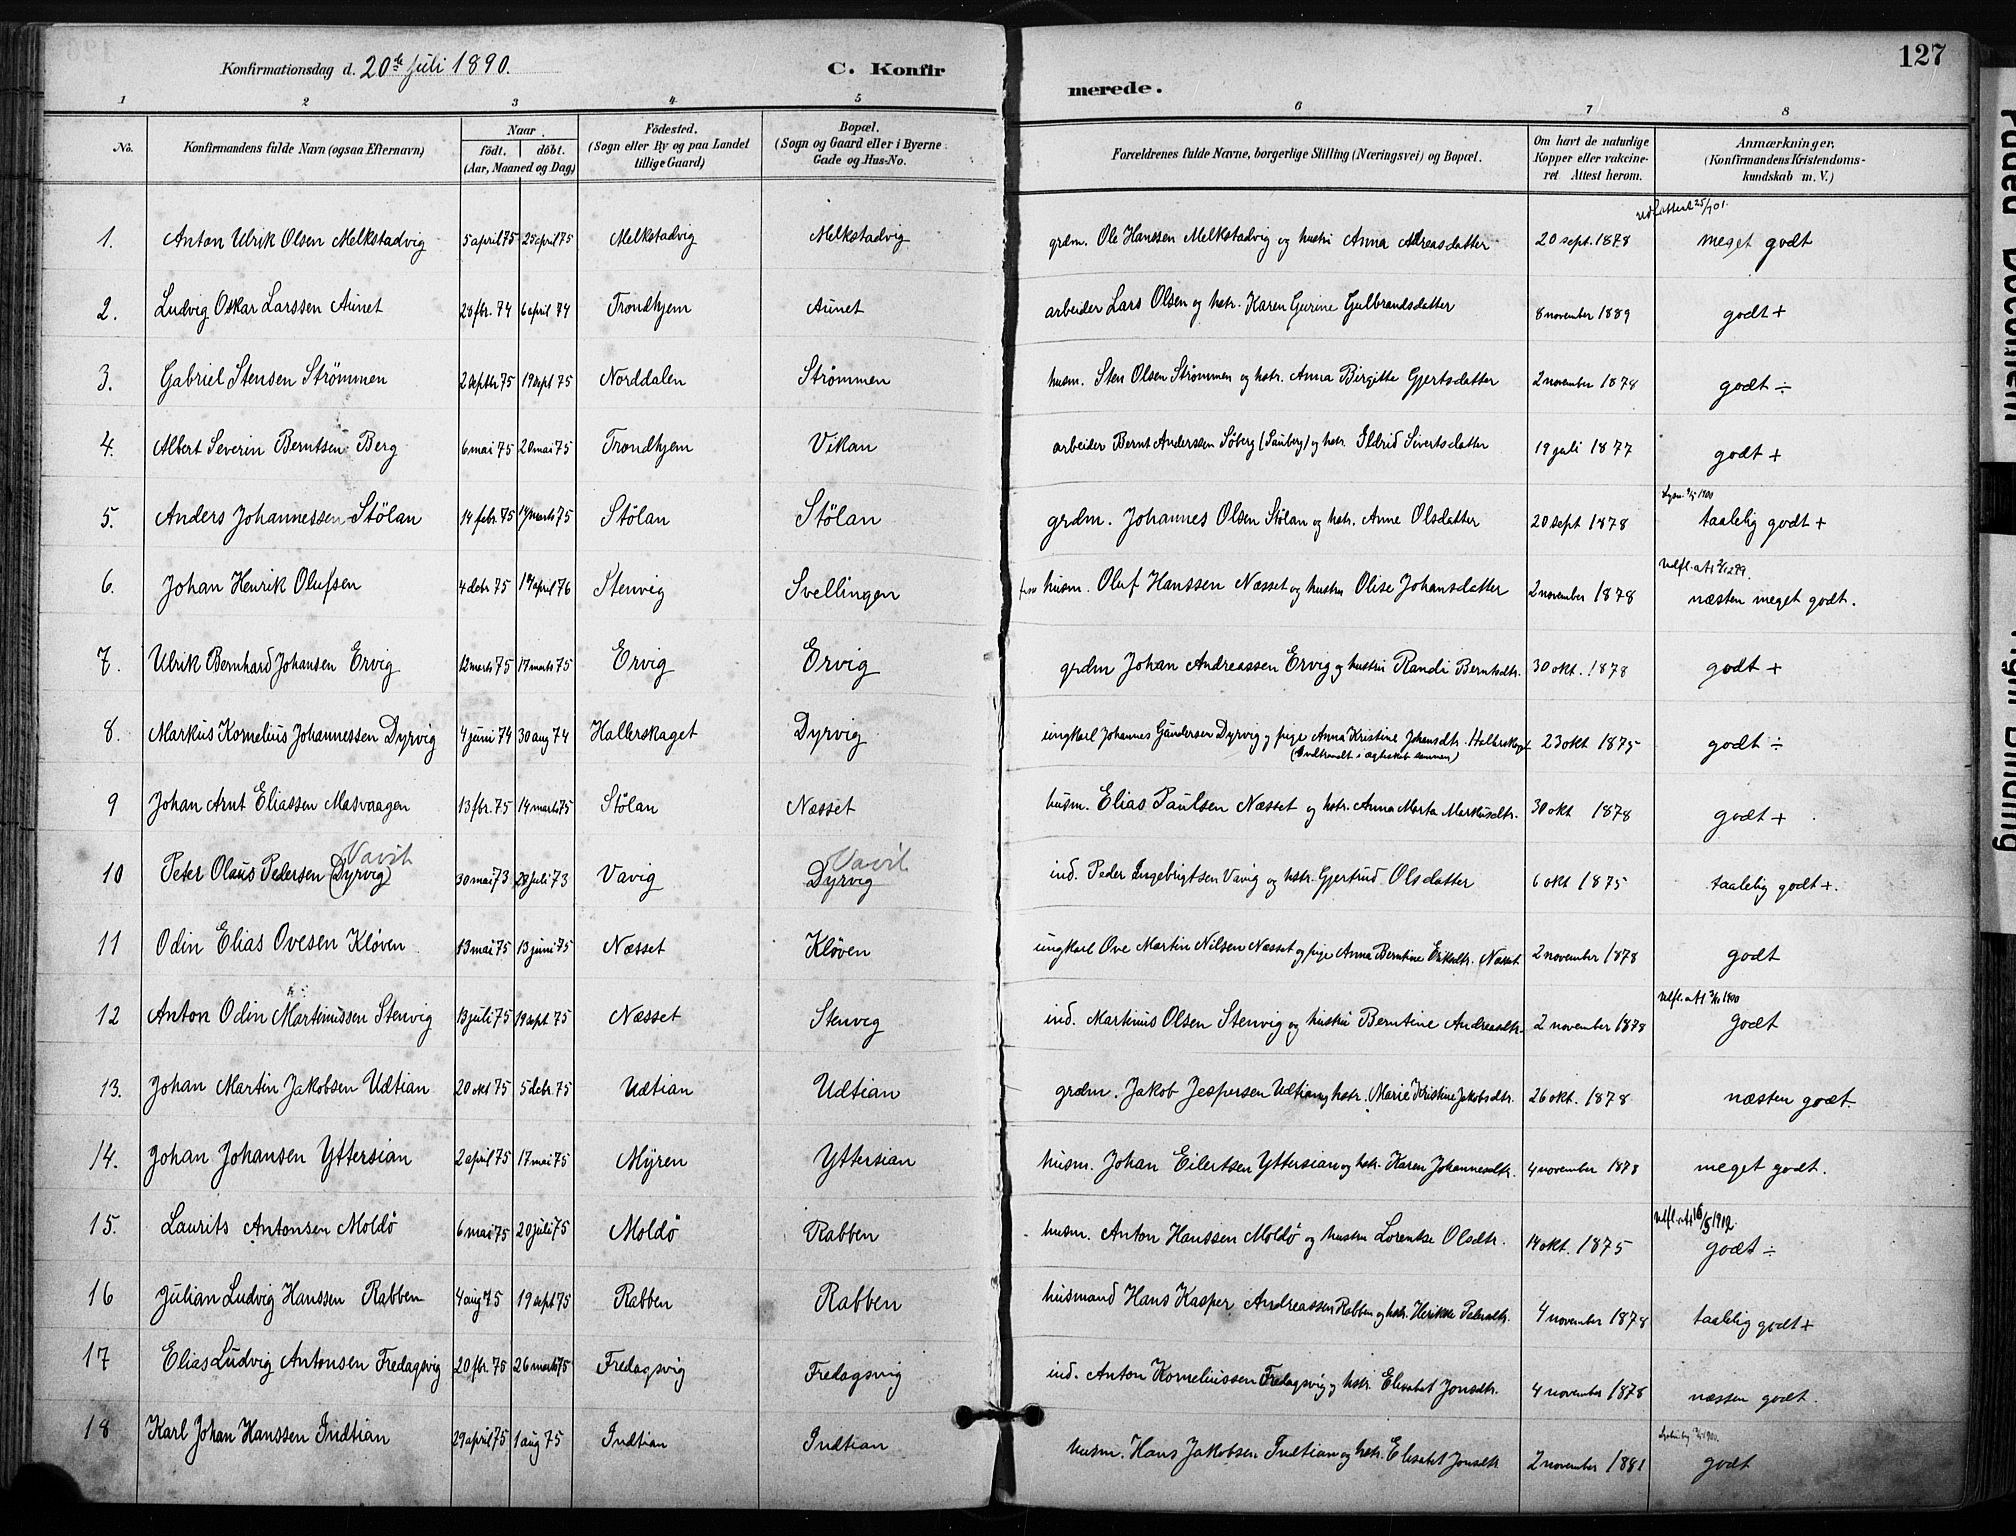 127
Konfirmationsdag d. 20de juli 1890. C. Konfirmerede.
1 2 3 4 5 6 7 8
No. Konfirmandens fulde Navn (ogsaa Efternavn) Naar födt. döbt. (Aar, Maaned og Dag) Födested. (Sogn eller By og paa Landet tillige Gaard) Bopæl. (Sogn og Gaard eller i Byerne Gade og Hus-No. Forældrenes fulde Navne, borgerlige Stilling (Næringsvei) og Bopæl. Om havt de naturlige Kopper eller vakcineret Attest herom. Anmærkninger. (Konfirmandens Kristendomskundskab m. V.)
1. Anton Ulrik Olsen Melkstadvig 5 april 75 25 april 75 Melkstadvig Melkstadvig grdm. Ole Hanssen Melkstadvig og hustru Anna Andreasdatter 20 sept. 1878 meget godt
2. Ludvig Oskar Larssen Aunet 28 fbr. 74 6 april 74 Trondhjem Aunet arbeider Lars Olsen og hstr. Karen Gurine Gulbrandsdatter 8 november 1889 godt +
3. Gabriel Stensen Strömmen 2 septbr 75 19 sept 75 Norddalen Strömmen husm. Sten Olsen Strömmen og hstr. Anna Birgitte Gjertsdatter 2 november 1878 godt ÷
4. Albert Severin Berntsen Berg 6 mai 75 20 mai 75 Trondhjem Vikan arbeider Bernt Anderssen Söberg (Sauberg) og hstr. Ildrid Sivertsdatter 19 juli 1877 godt +
5. Anders Johannessen Stölan 14 febr. 75 14 marts 75 Stölan Stölan grdm. Johannes Olsen Stölan og hstr. Anne Olsdatter 20 sept 1878 taalelig godt +
6. Johan Henrik Olufsen 4 debr 75 19 april 76 Stenvig Svellingen husm. Oluf Hanssen Næsset og hustru Olise Johansdatter 2 november 1878 næsten meget godt.
7. Ulrik Bernhard Johansen Ervig 12 marts 75 17 marts 75 Ervig Ervig grdm Johan Andreassen Ervig og hustru Randi Berntsdtr. 30 okt. 1878 godt +
8. Markus Kornelius Johannessen Dyrvig 4 juni 74 30 aug 74 Hallerskaget Dyrvig ungkarl Johannes Gundersen Dyrvig og pige Anna Kristine Johansdtr. Hallerskaget 23 okt 1875 godt ÷
(indtraadt i ægteskab sammen)
9 Johan Arnt Eliassen Masvaagen 13 fbr. 75 14 marts 75 Stölan Næsset husm. Elias Paulsen Næsset og hstr. Anna Marta Markusdtr. 30 okt 1878 godt +
10 Peter Olaus Pedersen (Dyrvig) Vavik 30 mai 73 28 juli 73 Vavig Dyrvig Vavik ind. Peder Ingebrigtsen Vavig og hstr. Gjertrud Olsdatter 6 okt 1875 taalelig godt +.
11 Odin Elias Ovesen Klöven 13 mai 75 13 juni 75 Næsset Klöven ungkarl Ove Martin Nilsen Næsset og pige Anna Berntine Eriksdtr. Næsset 2 november 1878 godt
12 Anton Odin Martinussen Stenvig 13 juli 75 19 sept 75 Næsset Stenvig ind. Martinus Olsen Stenvig og hustru Berntine Andreasdtr. 2 november 1878 godt
13. Johan Martin Jakobsen Udtian 20 okt 75 5 debr. 75 Udtian Udtian grdm. Jakob Jespersen Udtian og hstr. Marie Kristine Jakobsdtr. 26 okt. 1878 næsten godt.
14. Johan Johansen Yttersian 2 april 75 17 mai 75 Myren Yttersian husm. Johan Eilertsen Yttersian og hstr. Karen Johannesdtr. 4 november 1878 meget godt.
15. Laurits Antonsen Moldö 6 mai 75 20 juli 75 Moldö Rabben husm. Anton Hanssen Moldö og hustru Lorentse Olsdtr. 14 okt. 1875 godt ÷
16 Julian Ludvig Hanssen Rabben 4 aug 75 19 sept 75 Rabben Rabben husmand Hans Kasper Andreassen Rabben og hstr. Henrikke Pedersdtr. 4 november 1878 taalelig godt +
17 Elias Ludvig Antonsen Fredagsvig 20 fbr. 75 26 marts 75 Fredagsvig Fredagsvig ind. Anton Korneliussen Fredagsvig og hstr. Elisabet Jonsdtr. 4 november 1878 næsten godt.
18 Karl Johan Hanssen Indtian 29 april 75 1 aug 75 Indtian Indtian husm. Hans Jakobsen Indtian og hstr. Elisabet Jonsdtr 2 november 1881 godt